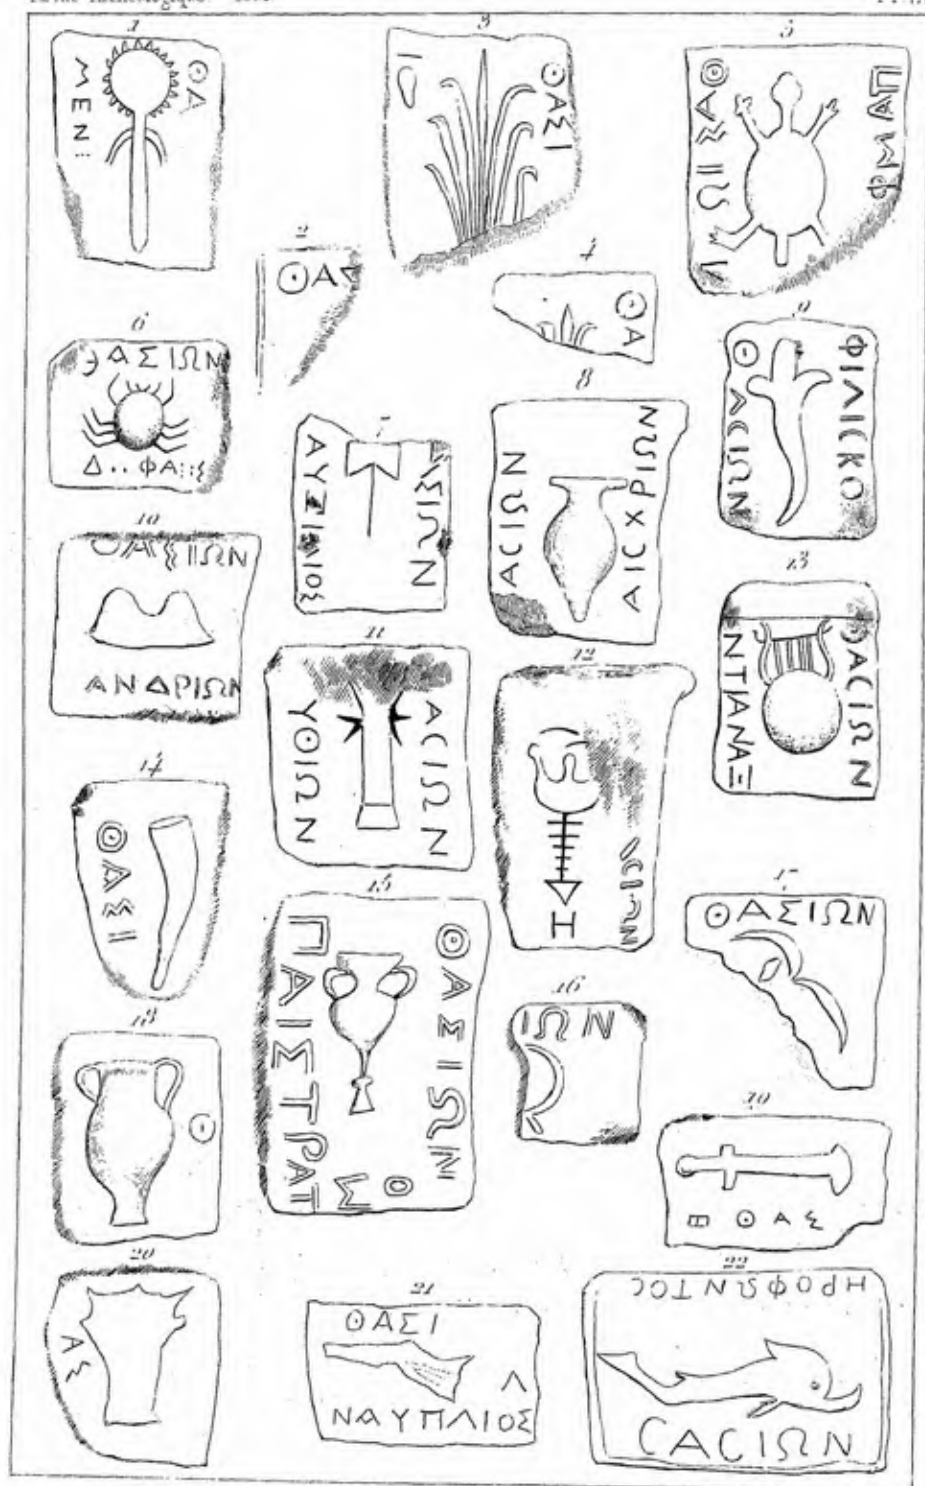 1
ΘΑ
ΜΕΝ⁝
2
ΘΑΣ
3
ΘΑΣΙ
4
ΘΑ
5
ΘΑΣΙΩΝ
ΠΑΜΦ
6
ΘΑΣΙΩΝ
Δ..ΦΑ
7
ΑΣΙΩΝ
ΑΥΞΙΛΙΟΣ
8
ΑϹΙΩΝ
ΑΙϹΧΡΙΩΝ
9
ΘΑϹΙΩΝ
ΦΙΛΙϹΚΟ
10
ΘΑΣΙΩΝ
ΑΝΔΡΙΩΝ
11
ΥΘΙΩΝ
ΑϹΙΩΝ
12
ΙΩΝ
Η
13
ΘΑϹΙΩΝ
ΝΤΙΑΝΑΞ
14
ΘΑΣΙ
15
ΘΑΣΙΩΝ
ΠΑΙΣΤΡΑΤ
ΟΣ
16
ΙΩΝ
17
ΘΑΣΙΩΝ
18
Θ
19
ΘΑΣ
20
ΑΣ
21
ΘΑΣΙ
Λ
ΝΑΥΠΛΙΟΣ
22
ΗΡΟΦΩΝΤΟϹ
ϹΑϹΙΩΝ